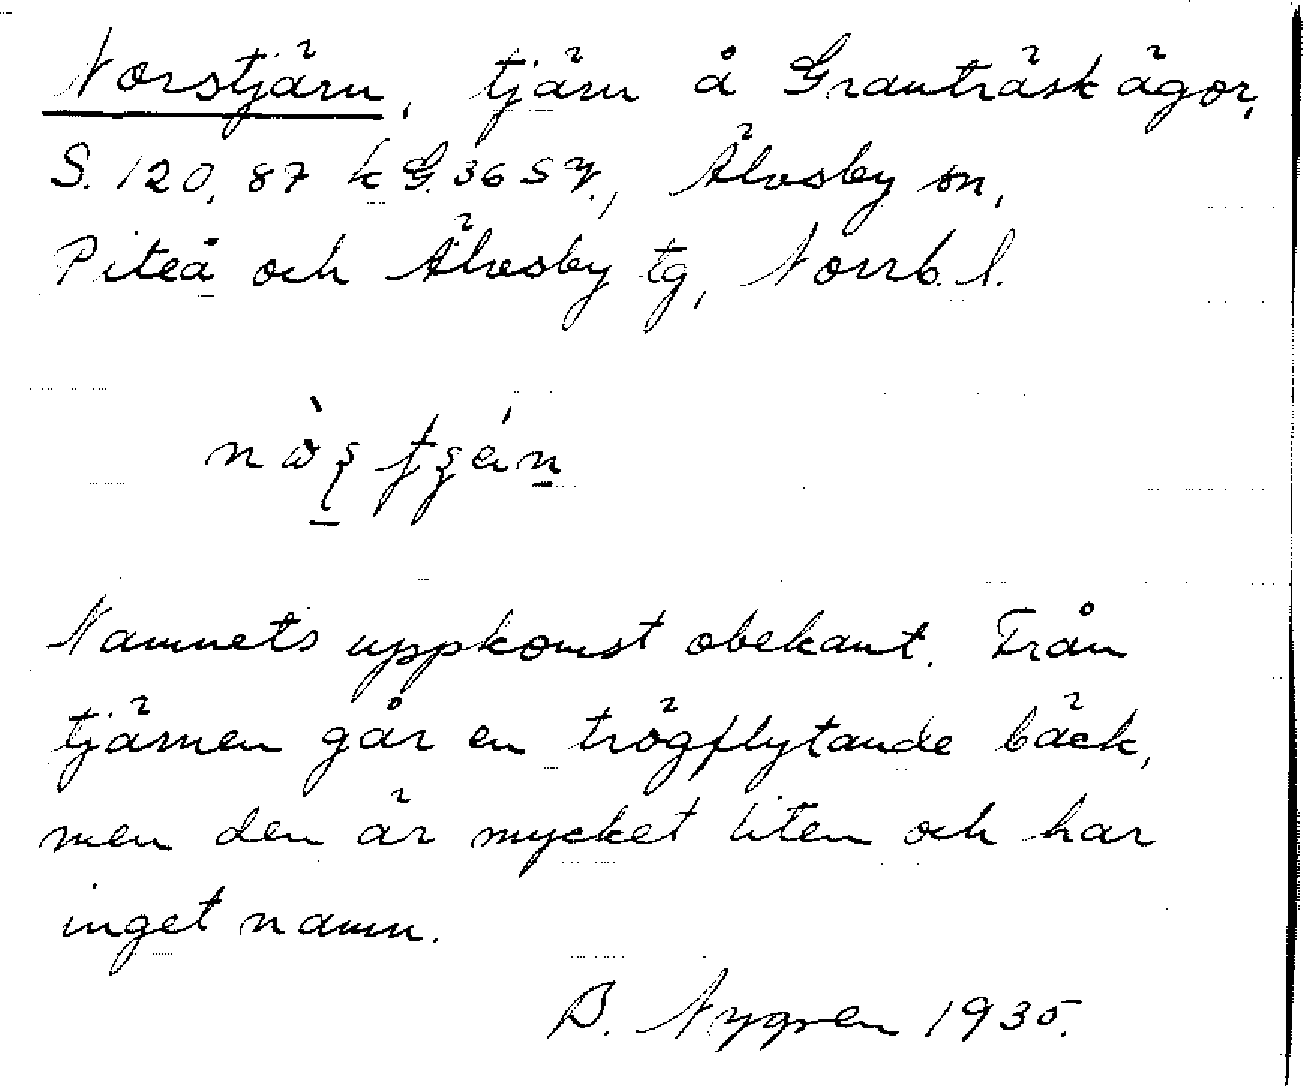 Norstjärn, tjärn å Granträsk ägor,
S. 120, 87 k G. 36 SV., Älvsby sn,
Piteå och Älvsby tg, Norrb. l.
Namnets uppkomst obekant. Från
tjärnen går en trögflytande bäck,
men den är mycket liten och har
inget namn.
B. Nygren 1935.